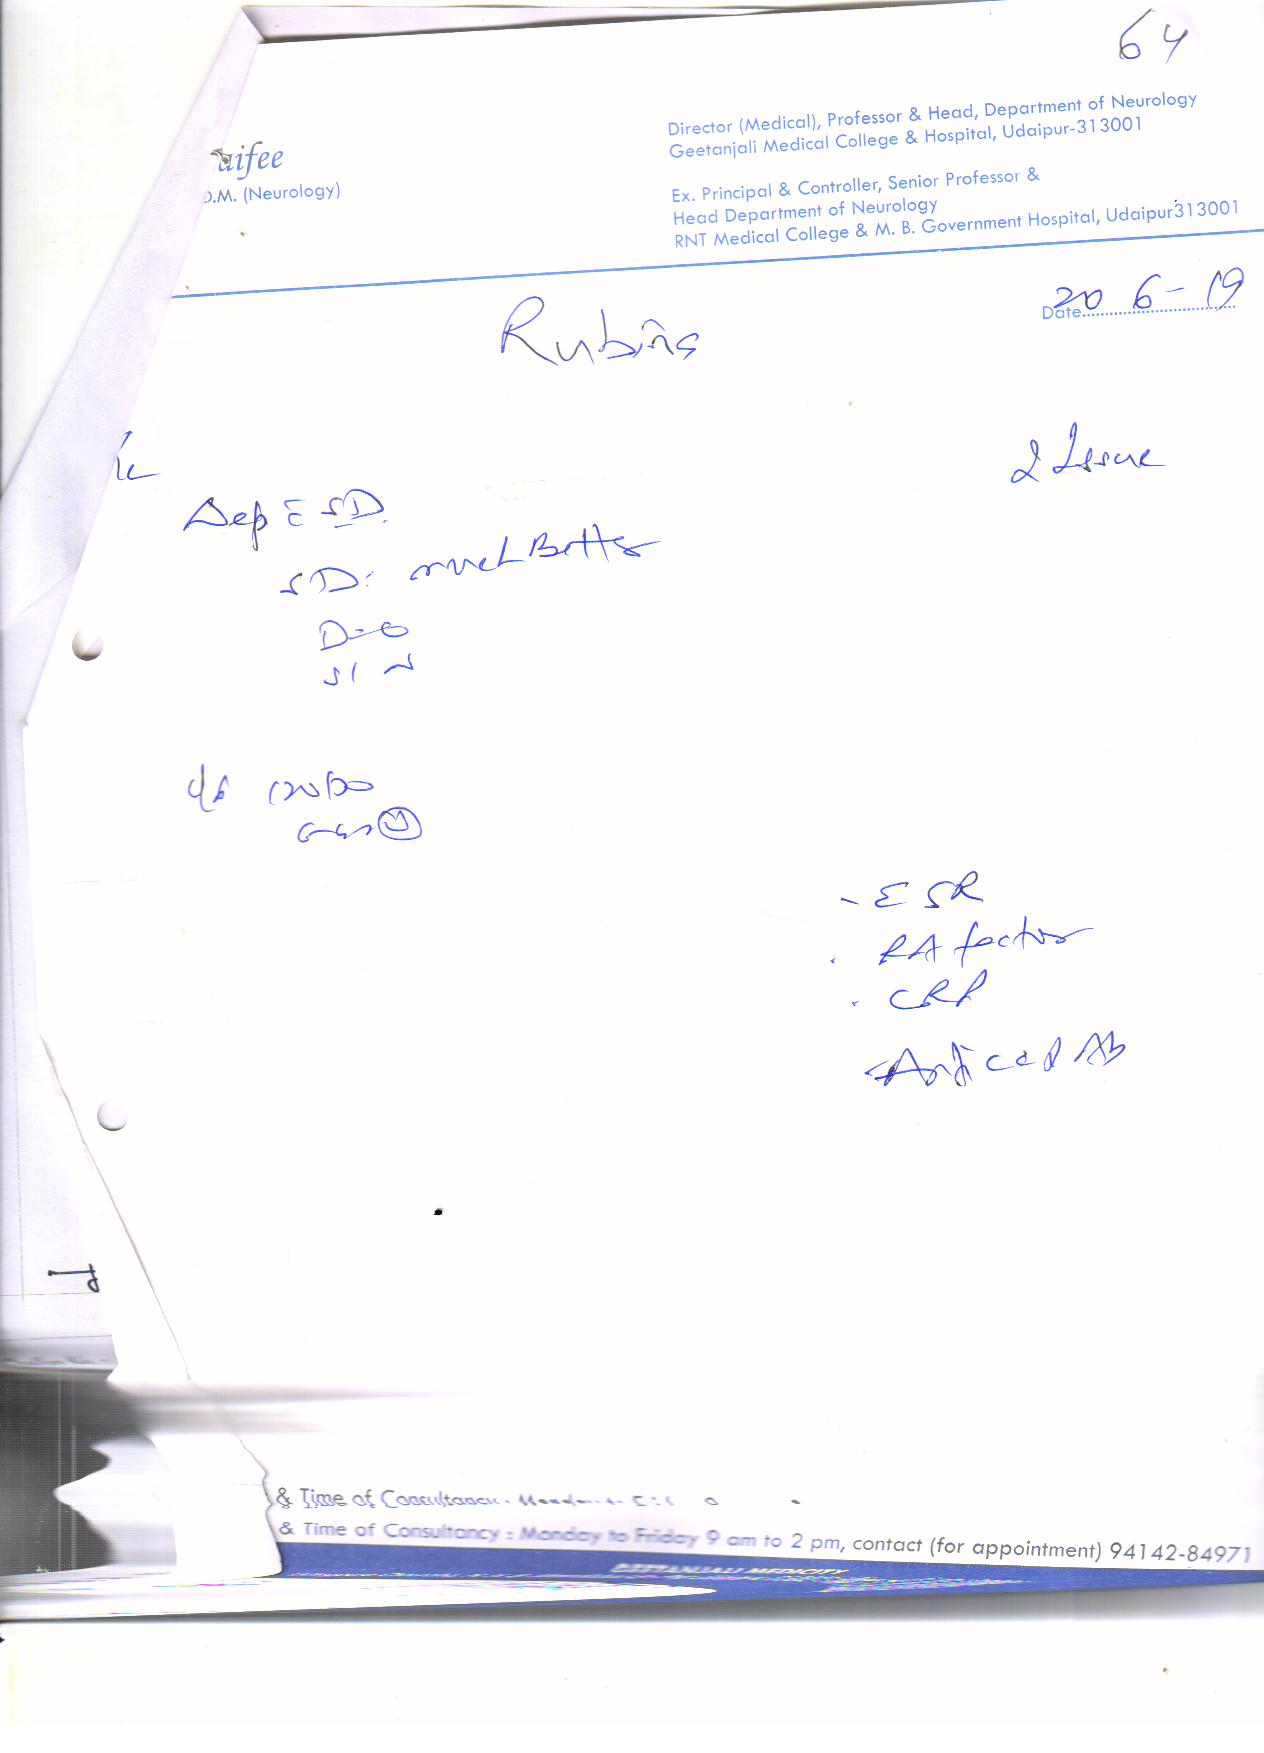 64
Director (Medical), Professor & Head, Department of Neurology
Geetanjali Medical College & Hospital, Udaipur-313001
aifee
D.M. (Neurology)
Ex. Principal & Controller, Senior Professor &
Head Department of Neurology
RNT Medical College & M. B. Government Hospital, Udaipur313001
Date 20 6-19
Rubina
2 Issue
Dep c SD
SD: much Better
D-0
S/ N
120/80
- ESR
. RA factor
. CRP
Anti CCP Ab
& Time of Consultancy
& Time of Consultancy : Monday to Friday 9 am to 2 pm, contact (for appointment) 94142-84971
GEETANJALI MEDICITY